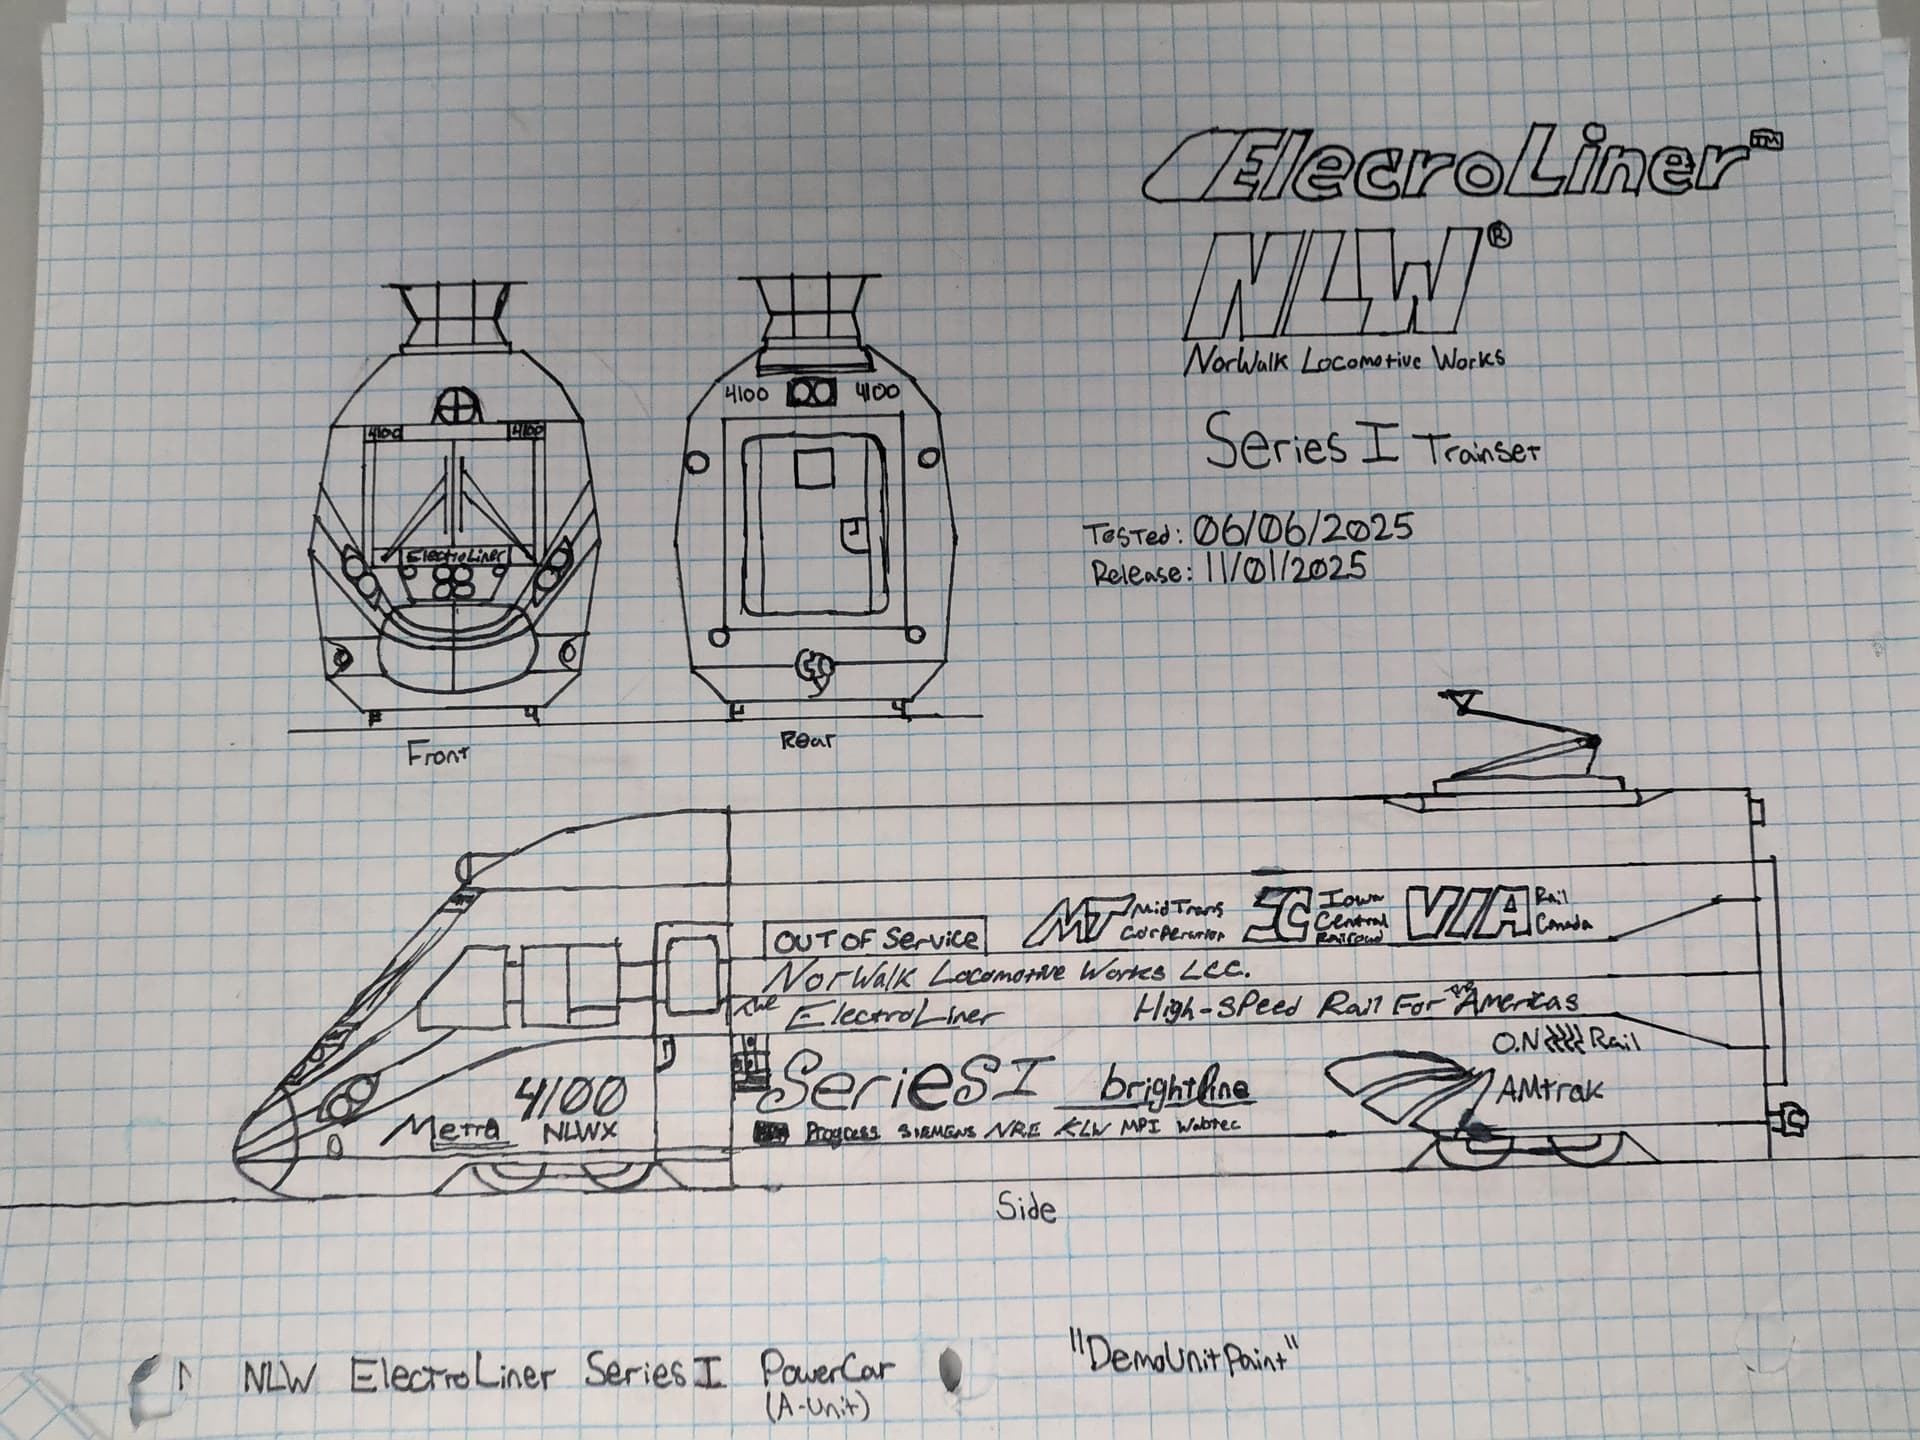 ElecroLiner™
NLW®
NorWalk Locomotive Works
Series I Trainset
Tested: 06/06/2025
Release: 11/01/2025
4100 4100
ElectroLiner
Front
4100 4100
Rear
OUT OF Service
MT MidTrans Corperation
IC Iowa Central Railroad
VIA Rail Canada
NorWalk Locomotive Works LCC.
The ElectroLiner
High-Speed Rail For The Americas
O.N Rail
Series I
brightline
AMtrak
4100
Metra NLWX
Progress SIEMENS NRE KLW MPI Wabtec
Side
NLW ElectroLiner Series I PowerCar
(A-Unit)
"DemoUnitPaint"